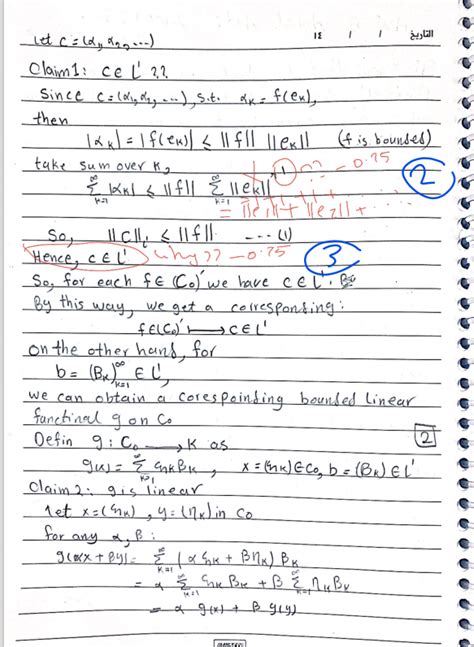 التاريخ / / ١٤
Let c = (α₁, α₂, ...)
Claim1: c ∈ l' ??
Since c = (α₁, α₂, ...), s.t. αₖ = f(eₖ),
then
|αₖ| = |f(eₖ)| ≤ ||f|| ||eₖ|| (f is bounded)
take sum over k, 1 ?? - 0.25
∑ₖ₌₁^∞ |αₖ| ≤ ||f|| ∑ₖ₌₁^∞ ||eₖ|| 2
= ||e₁|| + ||e₂|| + ...
So, ||c||₁ ≤ ||f|| ... (1)
Hence, c ∈ l' why?? - 0.25 3
So, for each f ∈ (C₀)' we have c ∈ l'.
By this way, we get a corresponding:
f ∈ (C₀)' ⟼ c ∈ l'
on the other hand, for
b = (βₖ)ₖ₌₁^∞ ∈ l',
we can obtain a corespoinding bounded linear
functinal g on C₀ 2
Defin g: C₀ ⟶ K as
g(x) = ∑ₖ₌₁^∞ ξₖ βₖ , x = (ξₖ) ∈ C₀, b = (βₖ) ∈ l'
Claim2: g is linear
let x = (ξₖ), y = (ηₖ) in C₀
for any α, β:
g(αx + βy) = ∑ₖ₌₁^∞ (α ξₖ + β ηₖ) βₖ
= α ∑ₖ₌₁^∞ ξₖ βₖ + β ∑ₖ₌₁^∞ ηₖ βₖ
= α g(x) + β g(y)